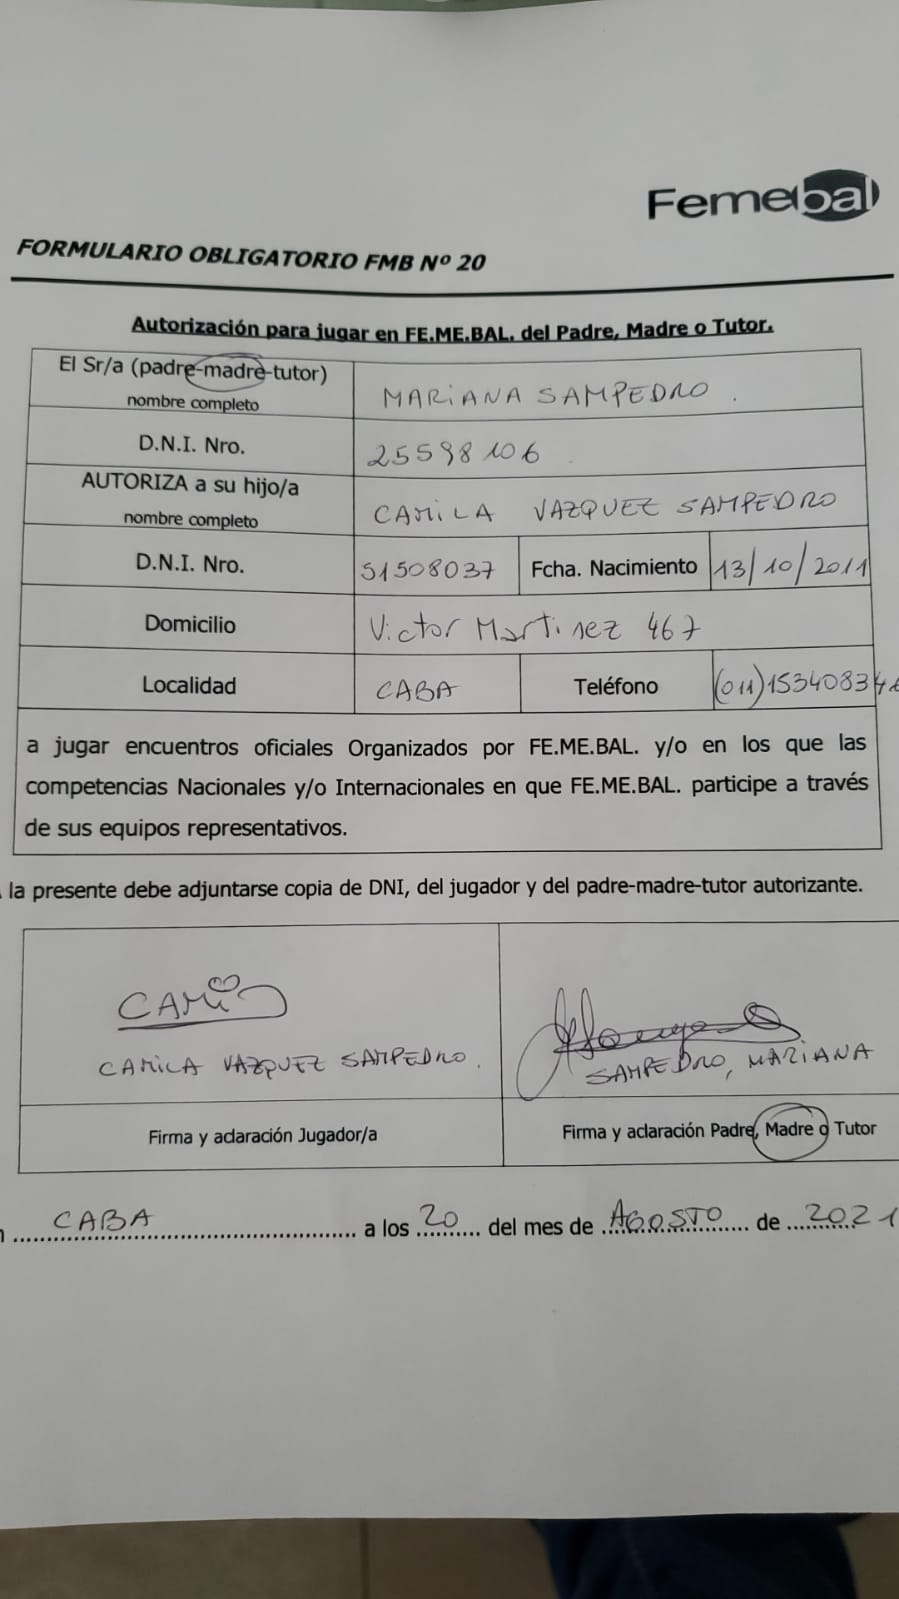 Femebal
FORMULARIO OBLIGATORIO FMB Nº 20
Autorización para jugar en FE.ME.BAL. del Padre, Madre o Tutor.
El Sr/a (padre-madre-tutor)
nombre completo
MARIANA SAMPEDRO.
D.N.I. Nro.
25598106
AUTORIZA a su hijo/a
nombre completo
CAMILA VAZQUEZ SAMPEDRO
D.N.I. Nro.
51508037
Fcha. Nacimiento
13/10/2011
Domicilio
Victor Martinez 467
Localidad
CABA
Teléfono
(011)1534083
a jugar encuentros oficiales Organizados por FE.ME.BAL. y/o en los que las
competencias Nacionales y/o Internacionales en que FE.ME.BAL. participe a través
de sus equipos representativos.
la presente debe adjuntarse copia de DNI, del jugador y del padre-madre-tutor autorizante.
CAMI
CAMILA VAZQUEZ SAMPEDRO.
SAMPEDRO, MARIANA
Firma y aclaración Jugador/a
Firma y aclaración Padre, Madre o Tutor
CABA a los 20 del mes de AGOSTO de 2021